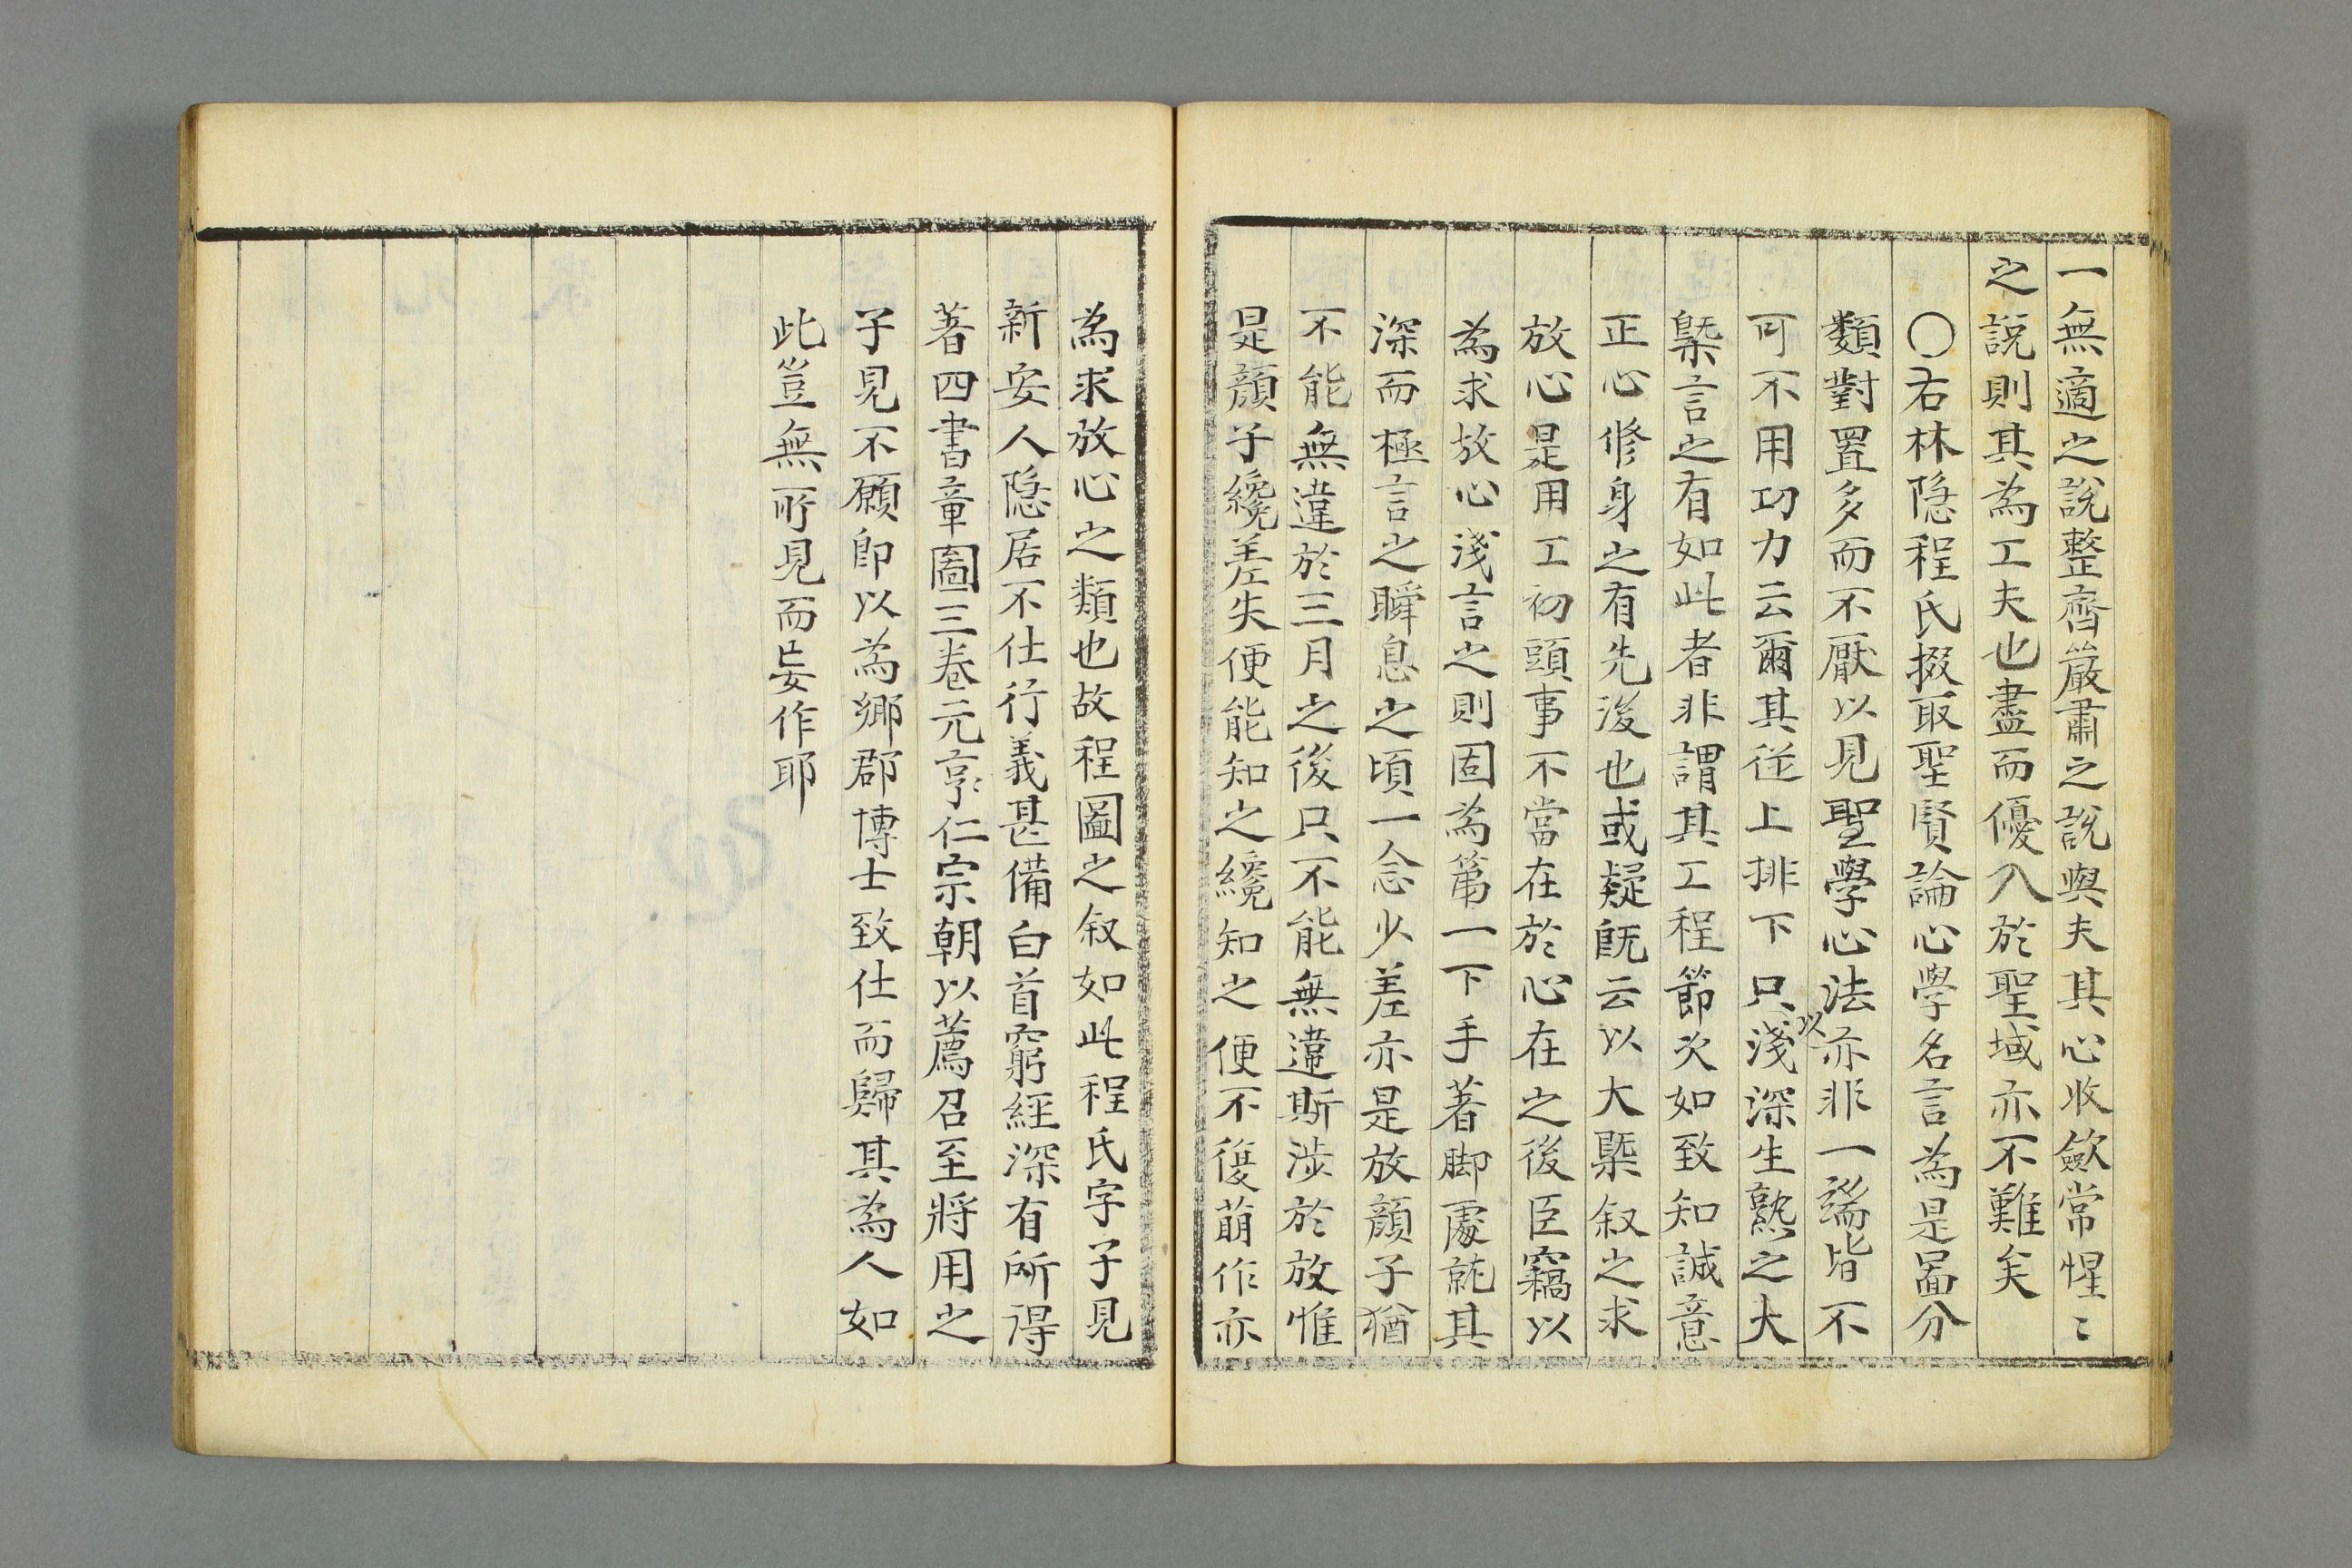 一無適之說整齊嚴肅之說與夫其心收斂常惺〻
之說則其為工夫也盡而優入於聖域亦不難矣
〇右林隠程氏掇取聖賢論心學名言為是圖分
類對置多而不厭以見聖學心法亦非一端皆不
可不用功力云爾其從上排下只以淺深生熟之大
槩言之有如此者非謂其工程節次如致知誠意
正心修身之有先後也或疑旣云以大槩叙之求
放心是用工初頭事不當在於心在之後臣竊以
為求放心淺言之則固為第一下手著脚處就其
深而極言之瞬息之頃一念少差亦是放顔子猶
不能無違於三月之後只不能無違斯涉於放惟
是顔子纔差失便能知之纔知之便不復萌作亦
為求放心之類也故程圖之叙如此程氏字子見
新安人隠居不仕行義甚備白首窮經深有所得
著四書章圖三卷元亨仁宗朝以薦召至將用之
子見不願卽以為鄉郡博士致仕而歸其為人如
此豈無所見而妄作耶